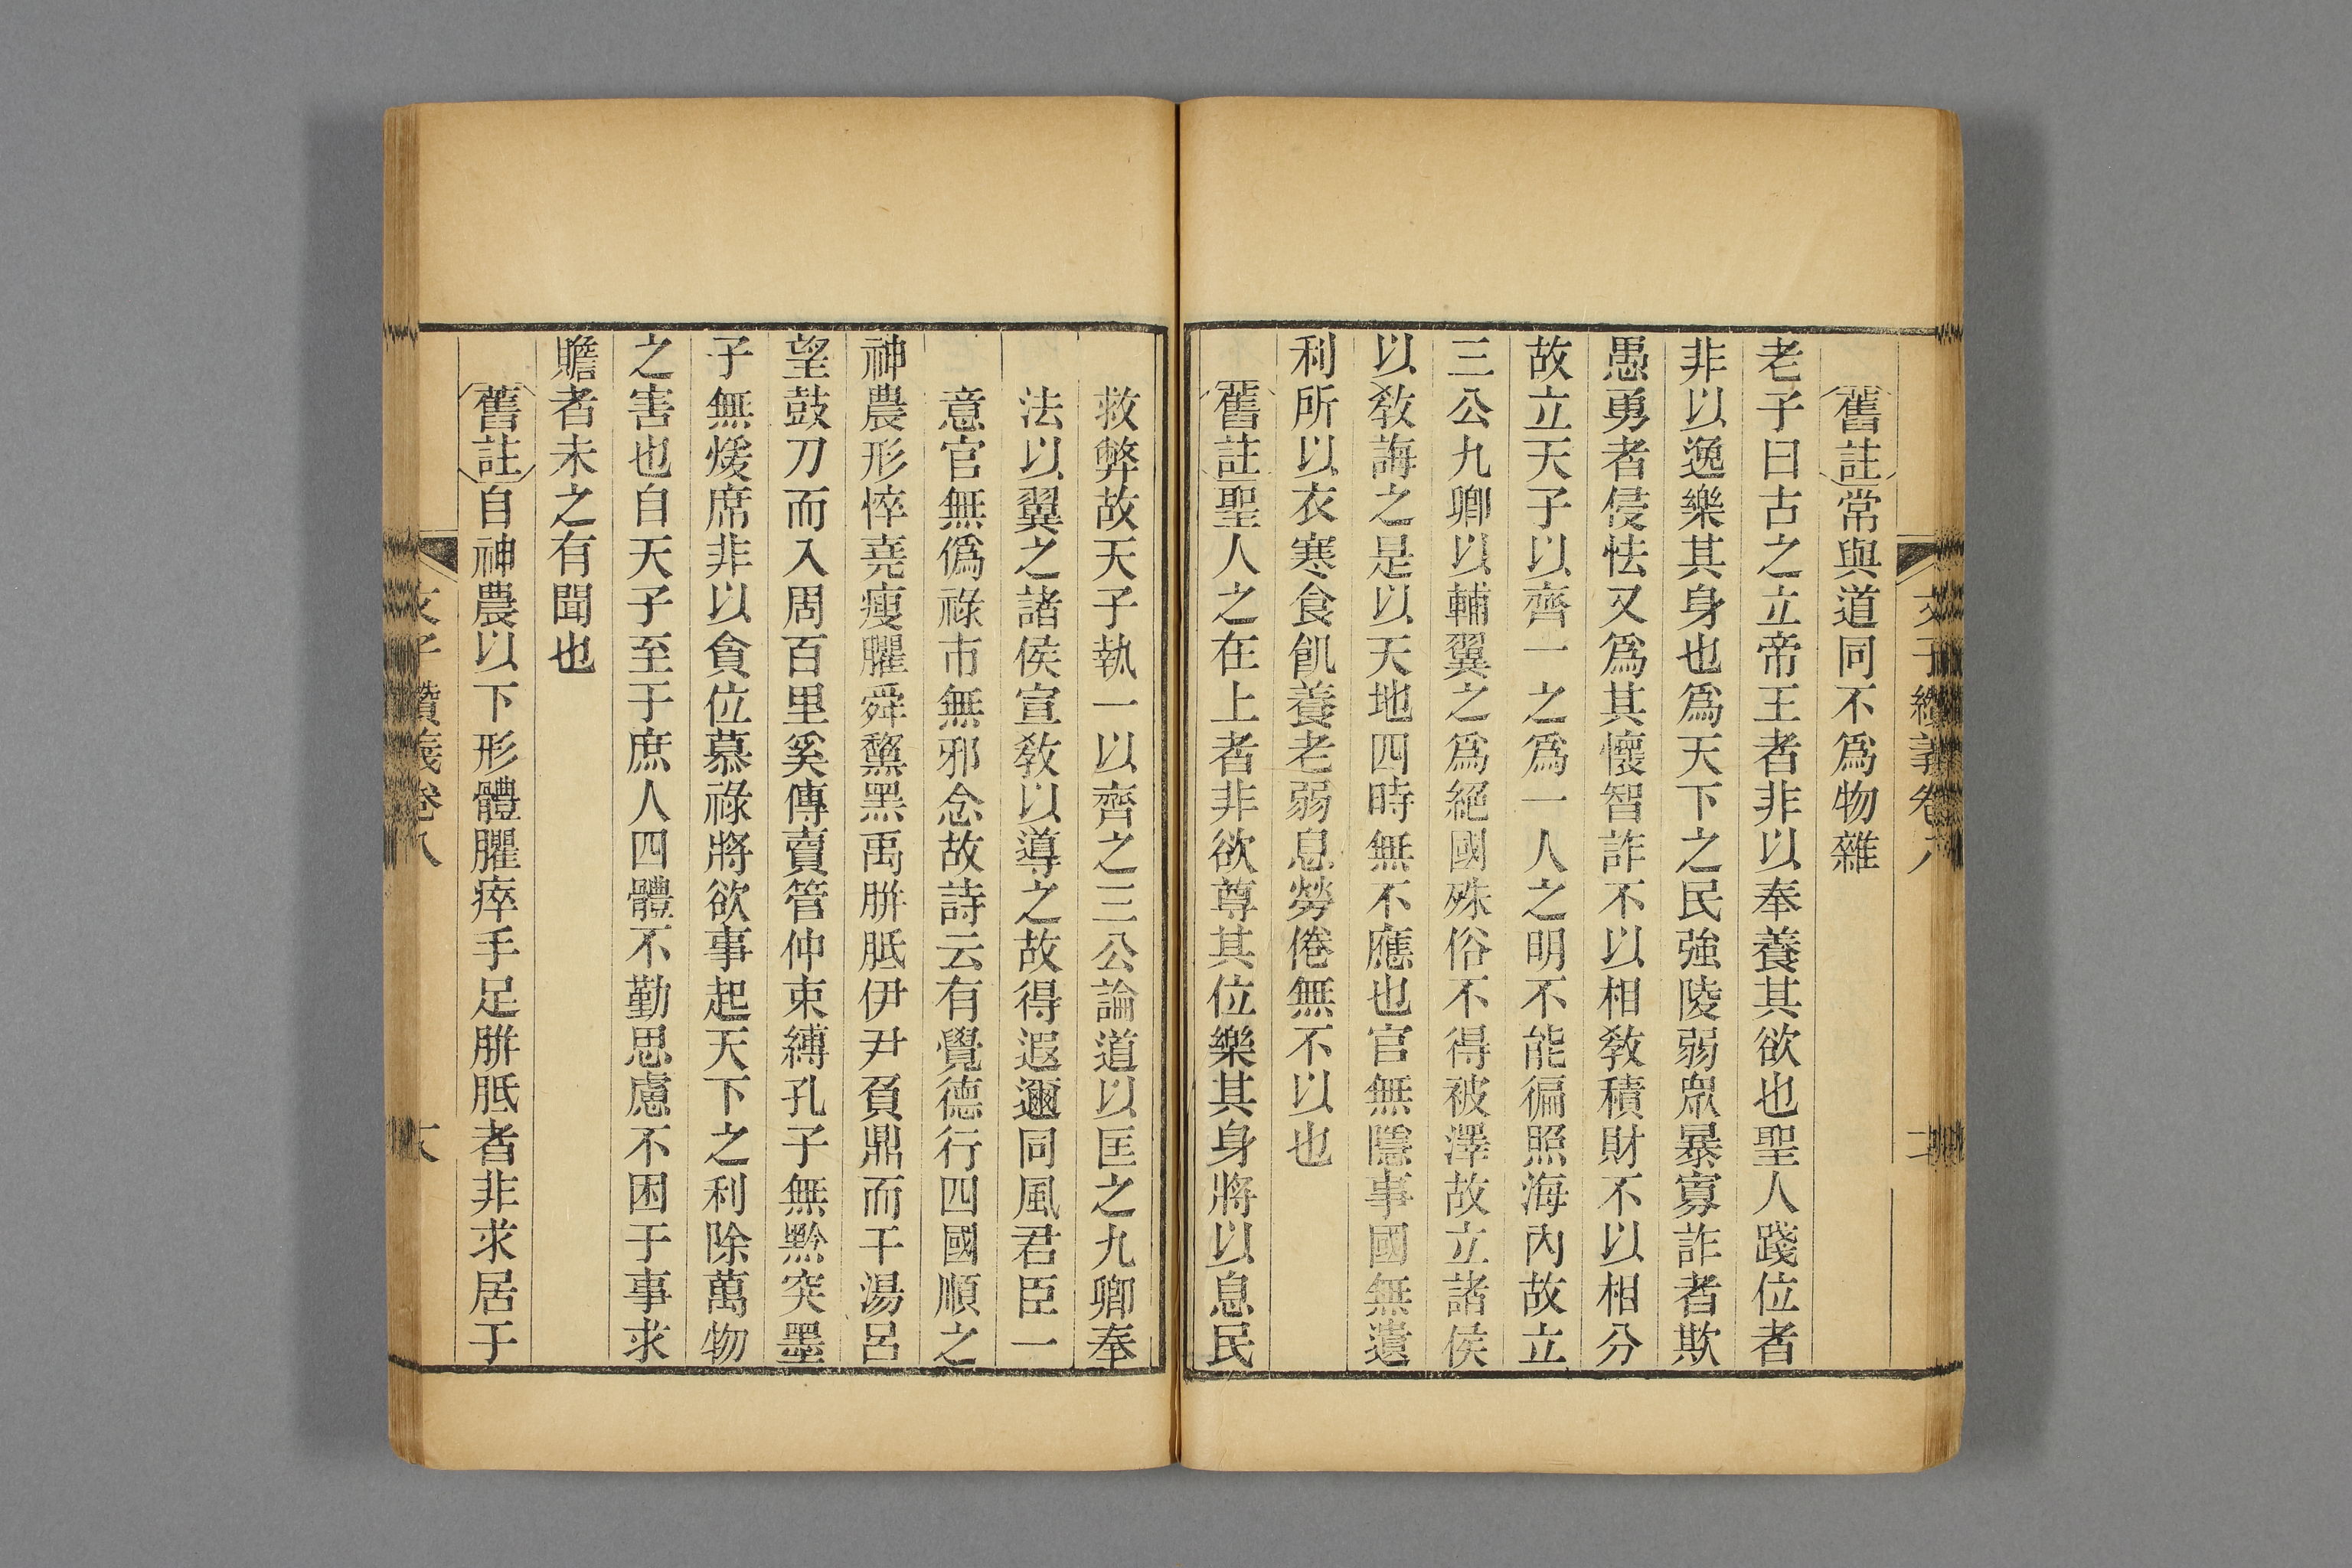 文子纘義卷八
舊註常與道同不爲物雜
老子曰古之立帝王者非以奉養其欲也聖人踐位者
非以逸樂其身也爲天下之民強陵弱眾暴寡詐者欺
愚勇者侵怯又爲其懷智詐不以相敎積財不以相分
故立天子以齊一之爲一人之明不能徧照海內故立
三公九卿以輔翼之爲絕國殊俗不得被澤故立諸侯
以敎誨之是以天地四時無不應也官無隱事國無遺
利所以衣寒食飢養老弱息勞倦無不以也
舊註聖人之在上者非欲尊其位樂其身將以息民
救弊故天子執一以齊之三公論道以匡之九卿奉
法以翼之諸侯宣敎以導之故得遐邇同風君臣一
意官無僞祿市無邪念故詩云有覺德行四國順之
神農形悴堯瘦臞舜黧黑禹胼胝伊尹負鼎而干湯呂
望鼓刀而入周百里奚傳賣管仲束縛孔子無黔突墨
子無煖席非以貪位慕祿將欲事起天下之利除萬物
之害也自天子至于庶人四體不勤思慮不困于事求
贍者未之有聞也
舊註自神農以下形體臞瘁手足胼胝者非求居于
文子纘義卷八